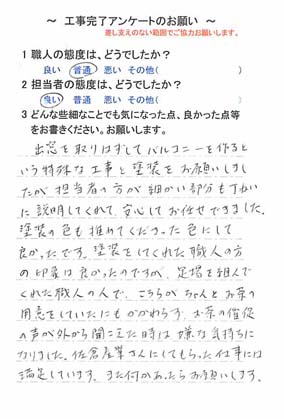 ～ 工事完了アンケートのお願い ～
差し支えのない範囲でご協力お願いします。
1 職人の態度は、どうでしたか？
良い 普通 悪い その他( )
2 担当者の態度は、どうでしたか？
良い 普通 悪い その他( )
3 どんな些細なことでも気になった点、良かった点等
をお書きください。お願いします。
出窓を取りはずしてバルコニーを作ると
いう特殊な工事と塗装をお願いしまし
たが 担当者の方が細かい部分も丁ねい
に説明してくれて、安心してお任せできました。
塗装の色も推めてくださった色にして
良かったです。塗装をしてくれた職人の方
の印象は良かったのですが、足場を組んで
くれた職人の人で、こちらがちゃんとお茶の
用意をしていたにもかかわらず、お茶の催促
の声が外から聞こえた時は嫌な気持ちに
なりました。佐倉産業さんにしてもらった仕事には
満足しています。また何かあったらお願いします。